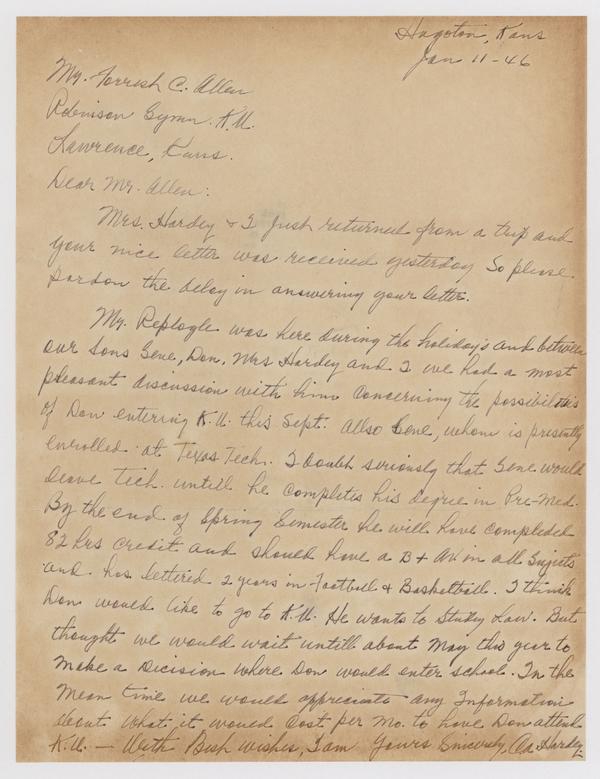 Hugoton, Kans
Jan 11-46
Mr. Forrest C. Allen
Robinson Gymn. K.U.
Lawrence, Kans.
Dear Mr. Allen:
Mrs. Hardey & I just returned from a trip and
your nice letter was received yesterday So please
pardon the delay in answering your letter.
Mr. Replogle was here during the holiday's and between
our Sons Gene, Don, Mrs Hardey and I we had a most
pleasant discussion with him concerning the possibilities
of Don entering K.U. this Sept. Allso Gene, whom is presently
enrolled at Texas Tech. I doubt seriously that Gene would
leave Tech. untill he completes his degree in Pre-Med.
By the end of Spring Semester he will have completed
82 hrs credit and should have a B+ av in all Subjects
and has lettered 2 years in Football & Basketball. I think
Don would like to go to K.U. He wants to Study Law. But
thought we would wait untill about May this year to
make a Decision where Don would enter school. In the
mean time we would appreciate any Information
about what it would Cost per Mo. to have Don attend
K.U. — With Best Wishes, I am Yours Sincerely, Hardey.